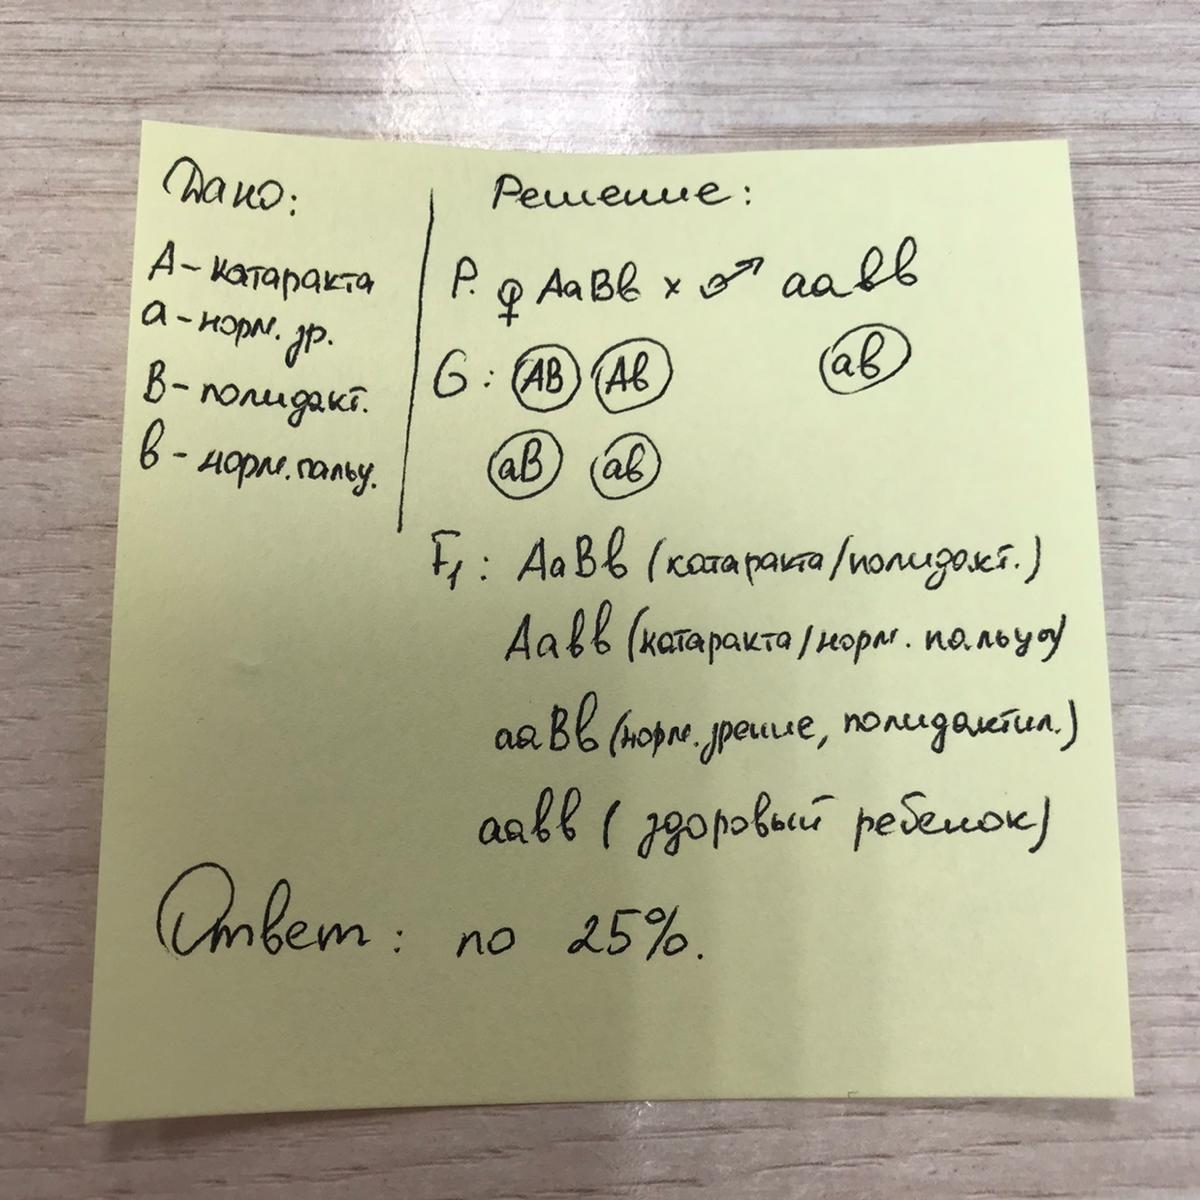 Дано:
А - катаракта
а - норм. зр.
В - полидакт.
в - норм. пальц.
Решение:
Р. ♀ АаВв × ♂ аавв
G: АВ Ав ав
аВ ав
F₁: АаВв (катаракта/полидакт.)
Аавв (катаракта/норм. пальцы)
ааВв (норм. зрение, полидактил.)
аавв ( здоровый ребенок)
Ответ: по 25%.